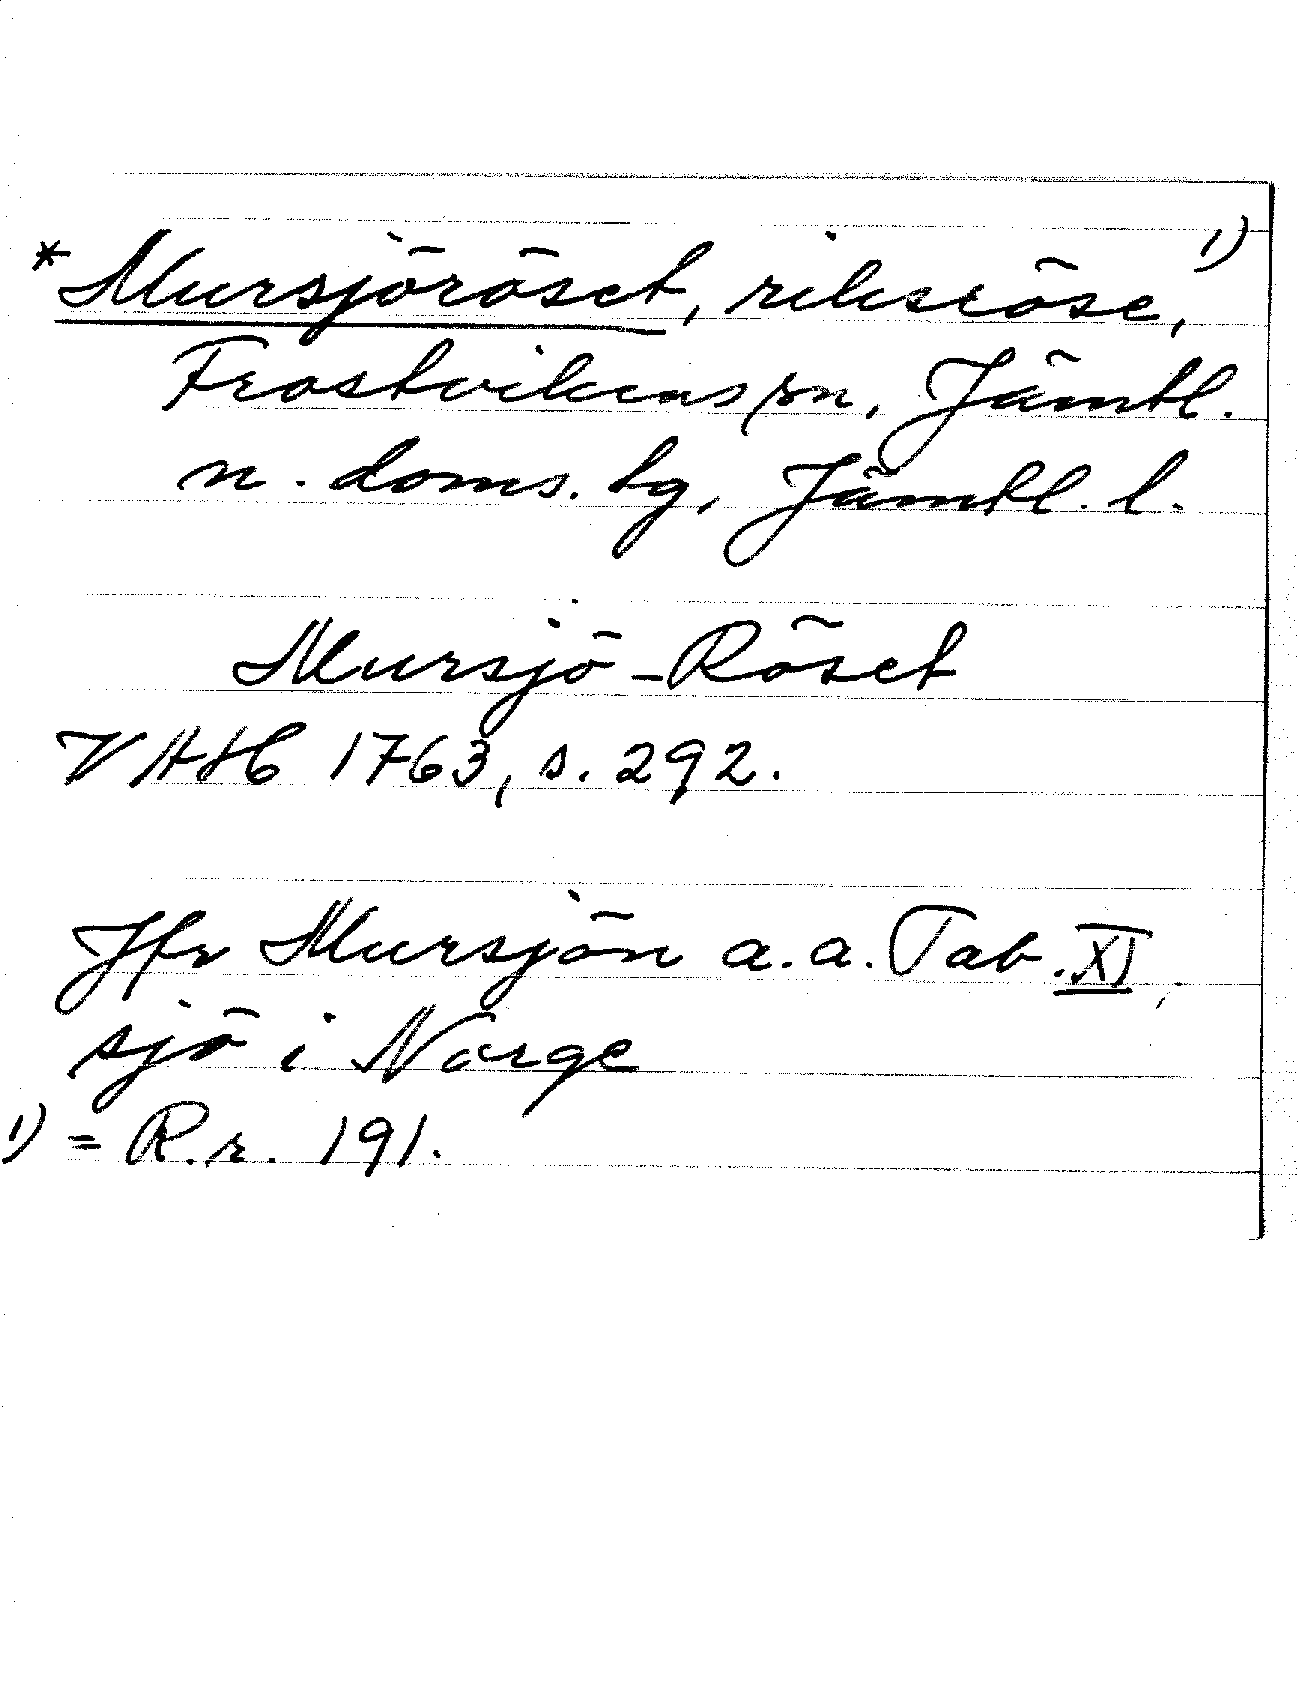 *Mursjöröset, riksröse, 1)
Frostvikens sn, Jämtl.
n. doms. tg, Jämtl. l.
Mursjö-Röset
VAH 1763, s. 292.
Jfr Mursjön a.a. Tab. XI,
sjö i Norge
1) = R.r. 191.